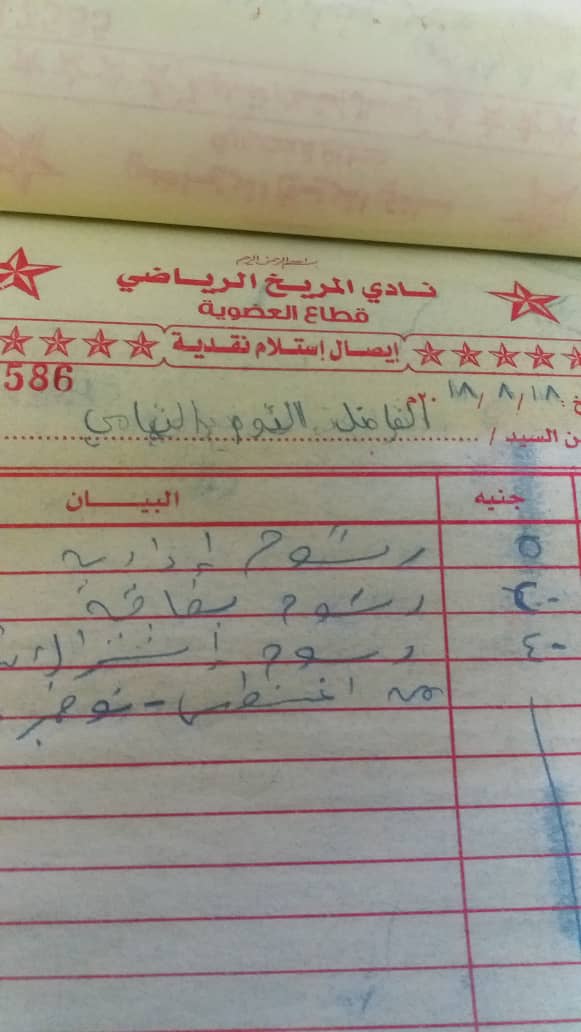 بسم الله الرحمن الرحيم
نادي المريخ الرياضي
قطاع العضوية
إيصال إستلام نقدية
586
١٨/٨/١٨
ن السيد / الفاضل التوم التهامي
جنيه البيان
٥ رسوم إدارية
٢٠ رسوم بطاقة
٤٠ رسوم إشتراك
من اغسطس - نوفمبر